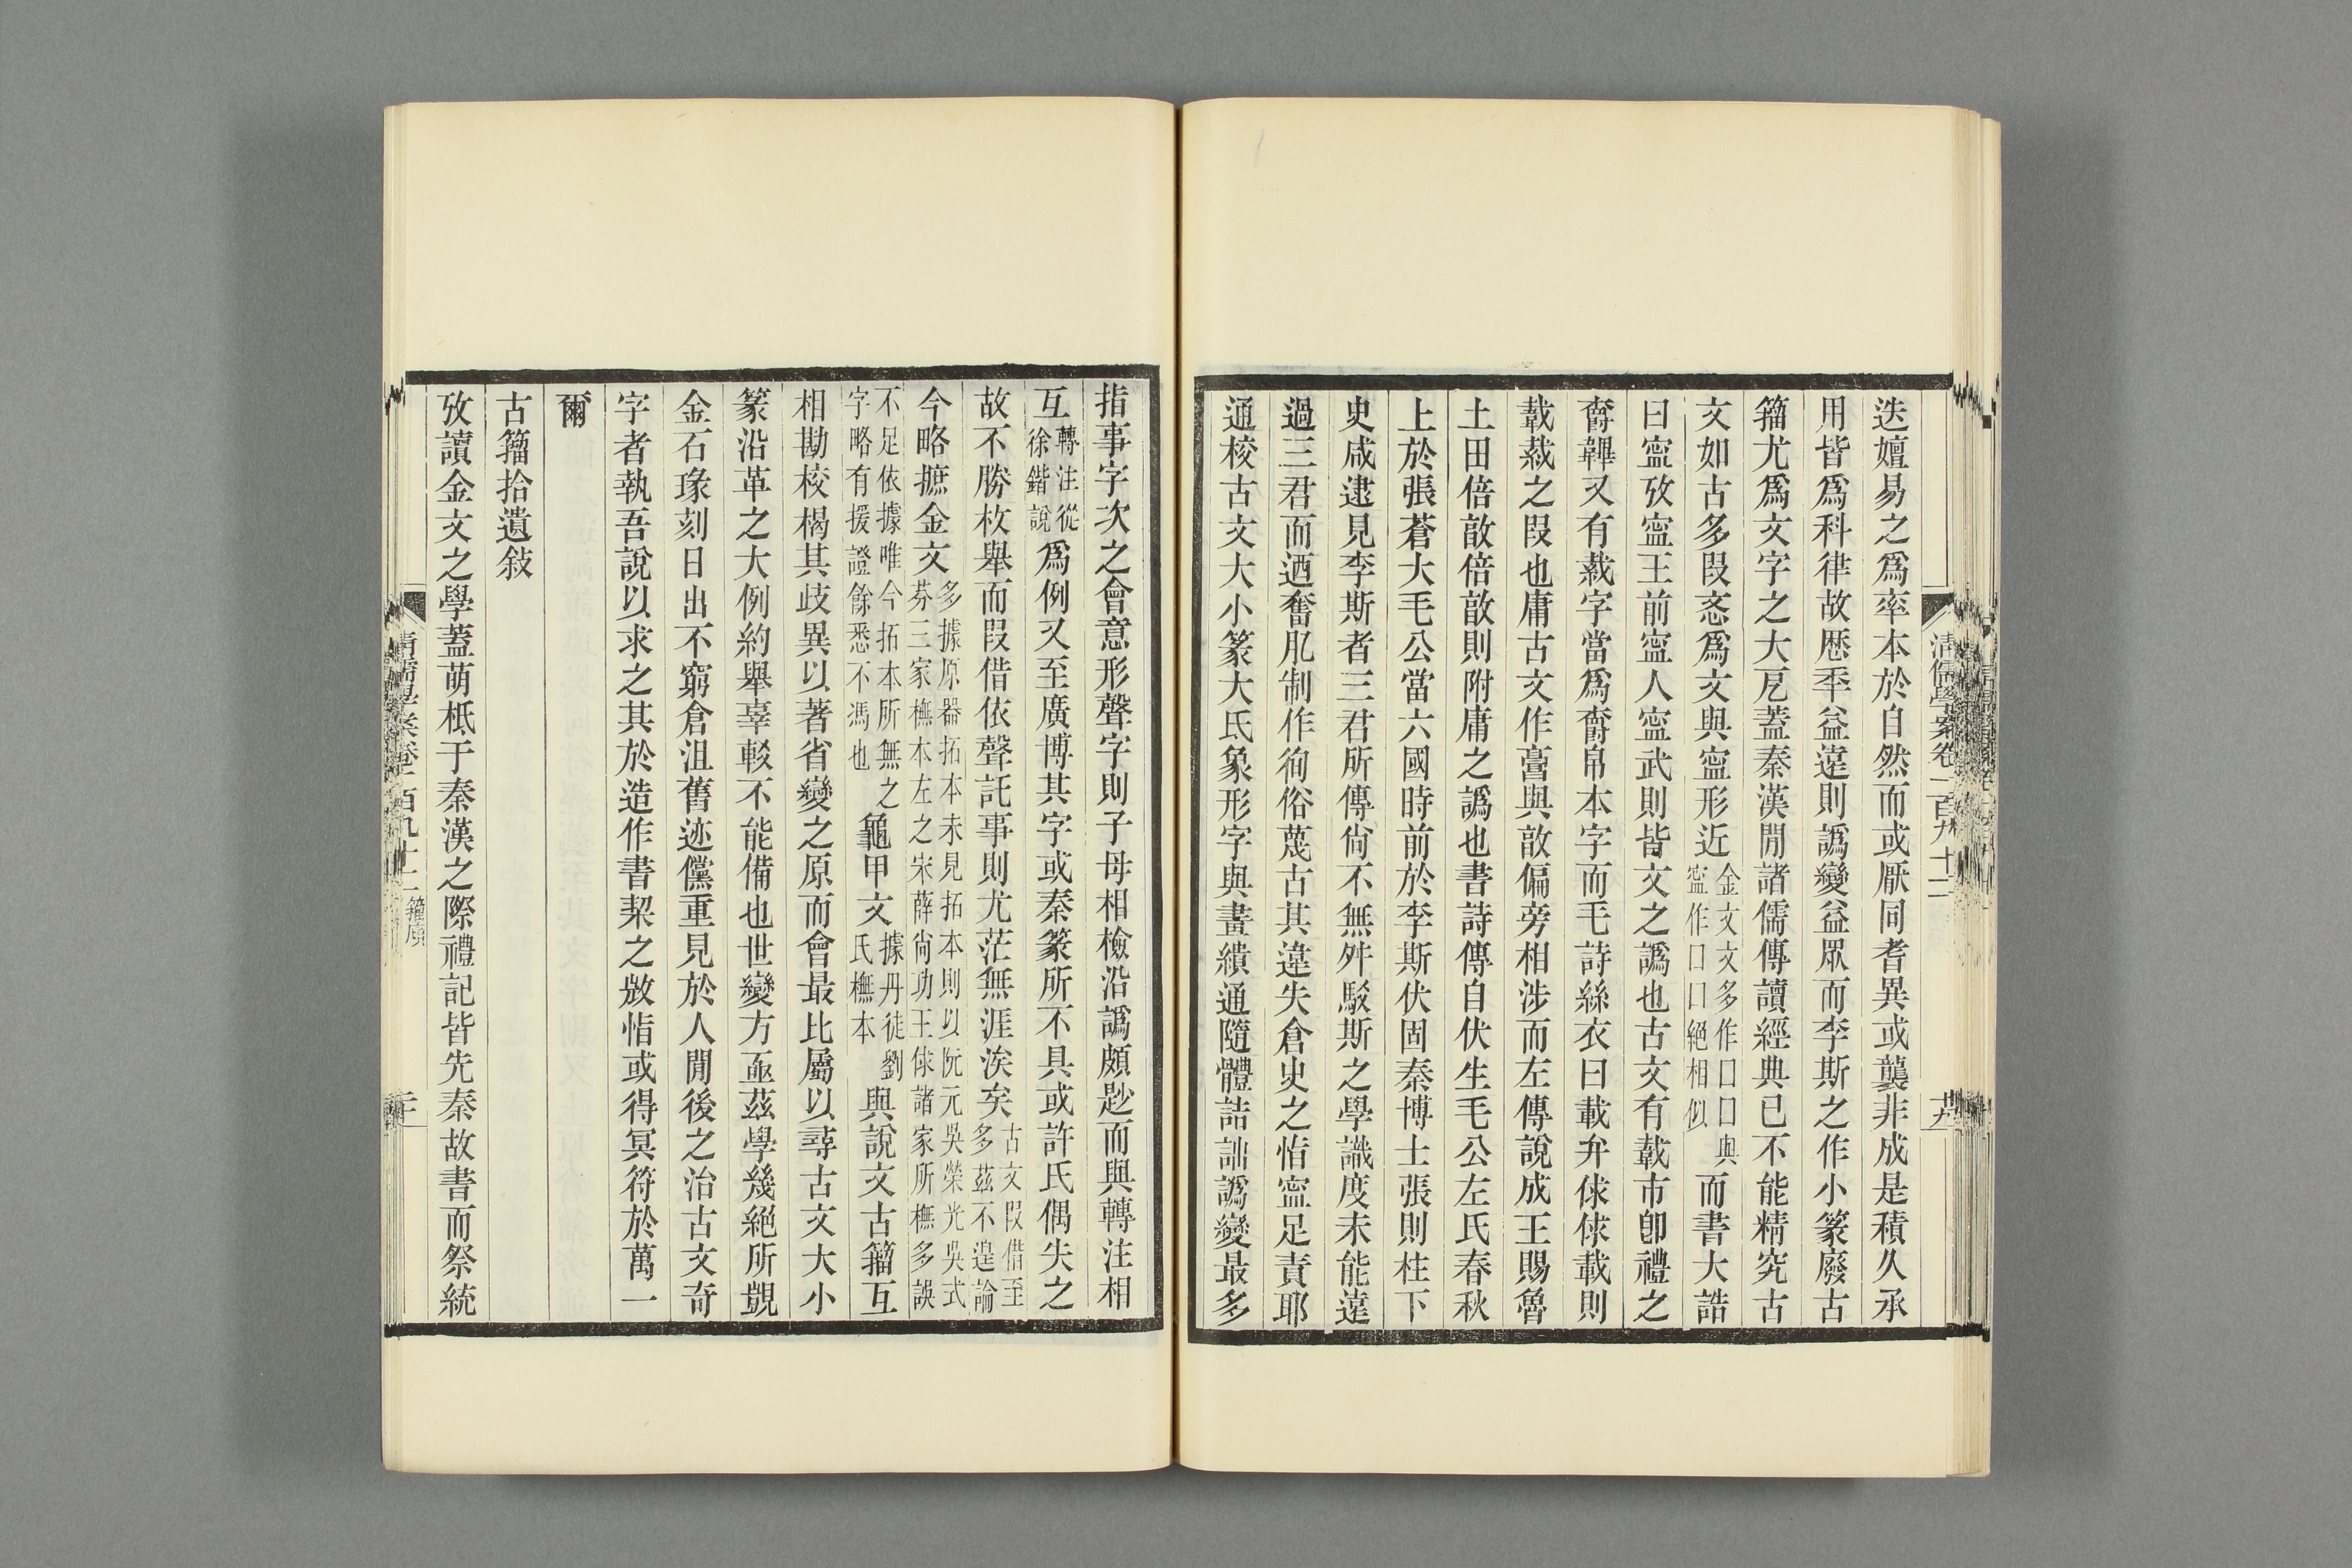 迭嬗易之爲率本於自然而或厭同耆異或襲非成是積久承
用皆爲科律故厤秊益遠則譌變益眾而李斯之作小篆廢古
籀尤爲文字之大戹蓋秦漢閒諸儒傳讀經典已不能精究古
文如古多叚忞爲文與寍形近
金文文多作口口與
寍作口口絕相似
而書大誥
曰寍攷寍王前寍人寍武則皆文之譌也古文有韍市卽禮之
爵韠又有韍字當爲爵帛本字而毛詩絲衣曰載弁俅俅載則
韍裁之叚也庸古文作𩫖與敦偏旁相涉而左傳說成王賜魯
土田倍敦倍敦則附庸之譌也書詩傳自伏生毛公左氏春秋
上於張蒼大毛公當六國時前於李斯伏固秦博士張則柱下
史咸逮見李斯者三君所傳尙不無舛駮斯之學識度未能遠
過三君而迺奮肊制作徇俗蔑古其違失倉史之恉寍足責耶
通校古文大小篆大氐象形字與畫繢通隨體詰詘譌變最多
指事字次之會意形聲字則子母相檢沿譌頗尟而與轉注相
互
轉注從
徐鍇說
爲例又至廣博其字或秦篆所不具或許氏偶失之
故不勝枚舉而叚借依聲託事則尤茫無涯涘矣
古文叚借至
多茲不遑論
今略摭金文
多據原器拓本未見拓本則以阮元吳榮光吳式
芬三家橅本左之宋薛尙功王俅諸家所橅多誤
不足依據唯今拓本所無之
字略有援證餘悉不馮也
龜甲文
據丹徒劉
氏橅本
與說文古籀互
相勘校楬其歧異以著省變之原而會最比屬以尋古文大小
篆沿革之大例約舉辜較不能備也世變方亟茲學幾絕所覬
金石瑑刻日出不窮倉沮舊迹儻重見於人閒後之治古文奇
字者執吾說以求之其於造作書栔之㪇恉或得冥符於萬一
爾
古籀拾遺敍
攷讀金文之學蓋萌柢于秦漢之際禮記皆先秦故書而祭統
清儒學案卷一百九十二
十九
清儒學案卷一百九十二 籀廎
二十